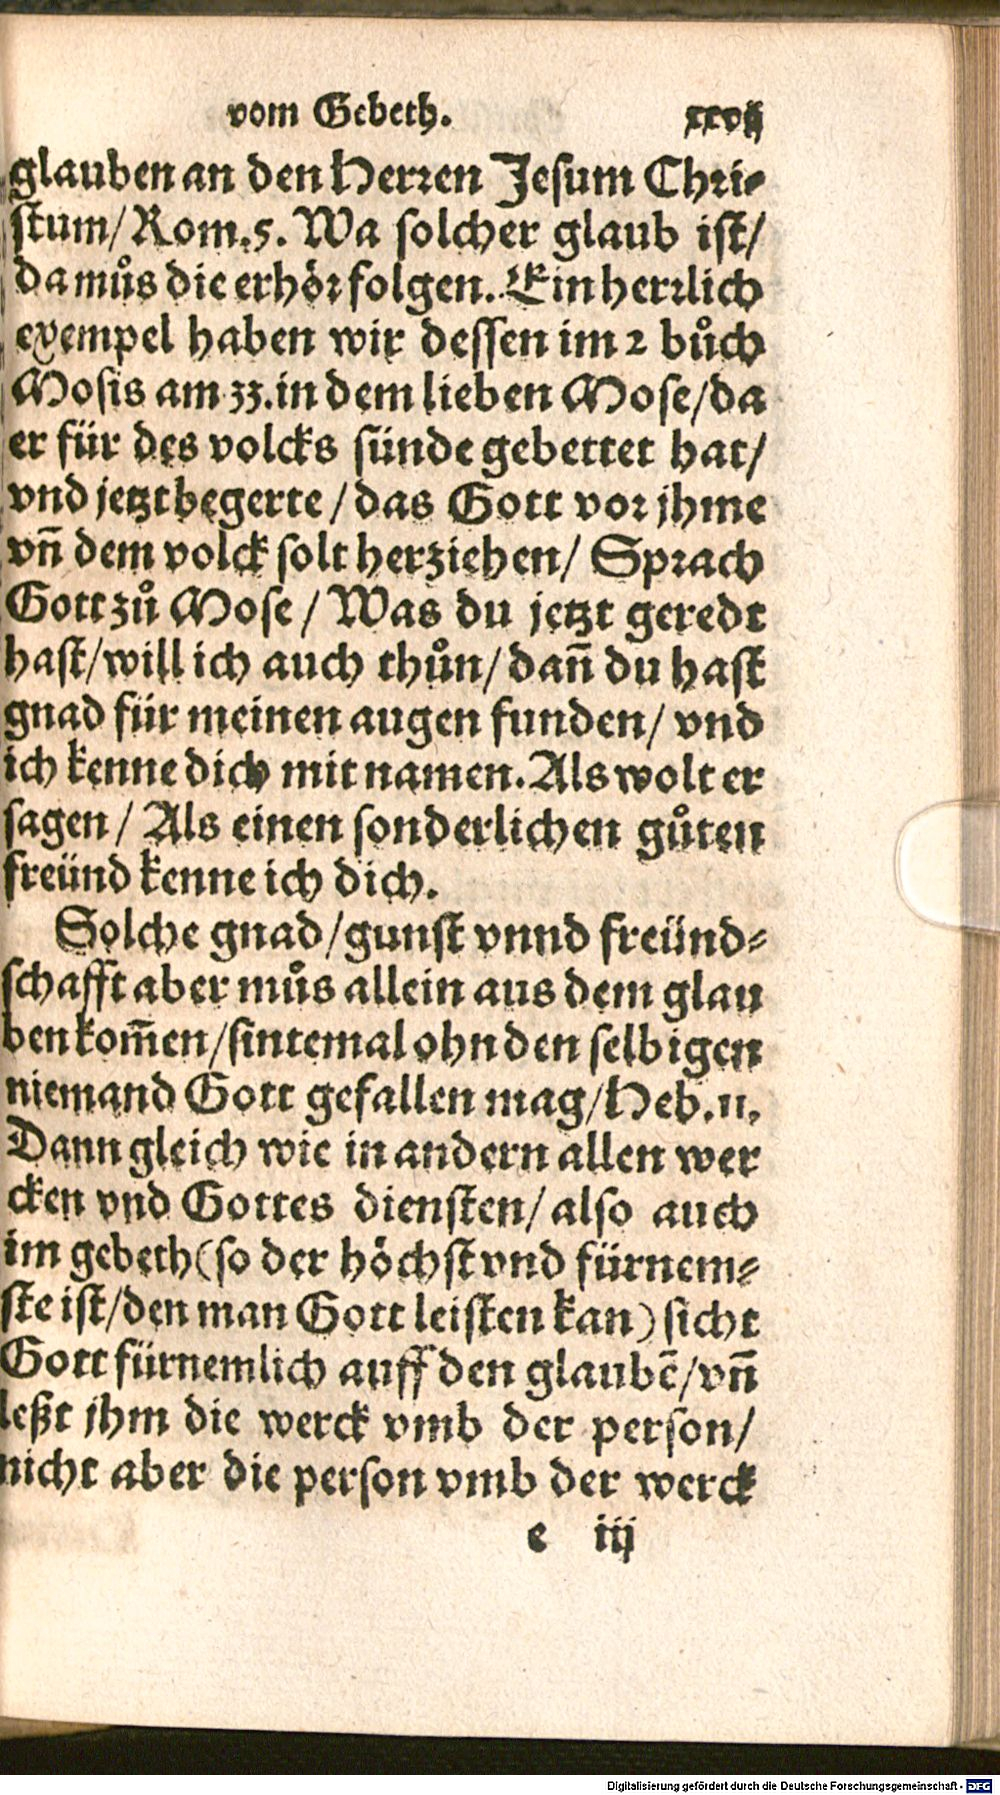 vom Gebeth. xxvij
glauben an den Herren Jesum Chri⸗
stum/ Rom.5. Wa solcher glaub ist/
da můs die erhör folgen. Ein herrlich
exempel haben wir dessen im 2 bůch
Mosis am 33. in dem lieben Mose/ da
er für des volcks sünde gebettet hat/
vnd jetzt begerte / das Gott vor jhme
vñ dem volck solt herziehen/ Sprach
Gott zů Mose / Was du jetzt geredt
hast/ will ich auch thůn/ dañ du hast
gnad für meinen augen funden/ vnd
ich kenne dich mit namen. Als wolt er
sagen / Als einen sonderlichen gůten
freünd kenne ich dich.
Solche gnad/ gunst vnnd freünd⸗
schafft aber můs allein aus dem glau
ben kom̃en/ sintemal ohn den selbigen
niemand Gott gefallen mag/ Heb.11.
Dann gleich wie in andern allen wer
cken vnd Gottes diensten/ also auch
im gebeth (so der höchst vnd fürnem⸗
ste ist/ den man Gott leisten kan) sicht
Gott fürnemlich auff den glaubẽ/ vñ
leßt jhm die werck vmb der person/
nicht aber die person vmb der werck
e iij
Digitalisierung gefördert durch die Deutsche Forschungsgemeinschaft - DFG